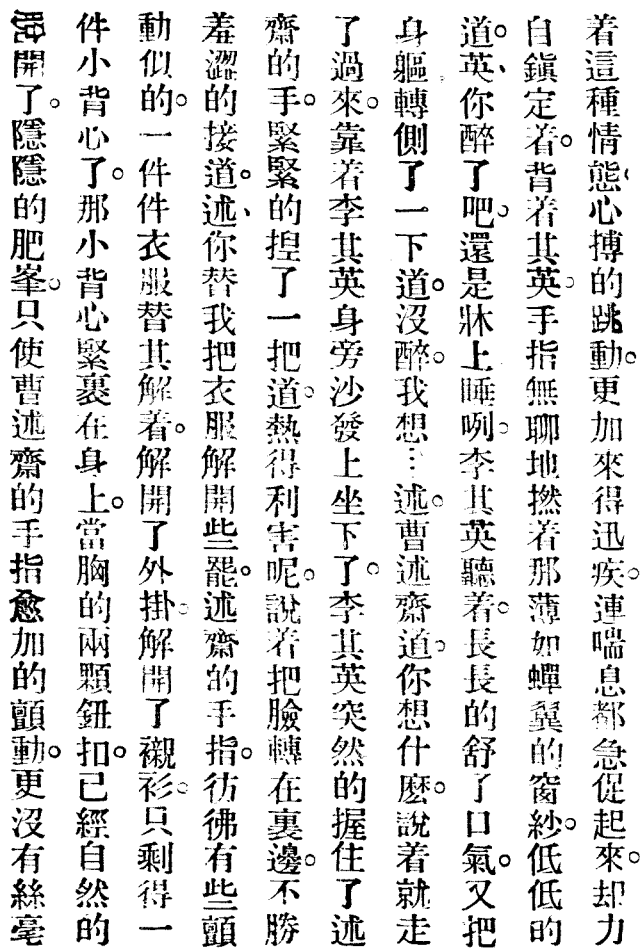 着這種情態心搏的跳動。更加來得迅疾。連喘息都急促起來。却力
自鎭定着。背着其英。手指無聊地撚着那薄如蟬翼的窗紗。低低的
道。英、你醉了吧。還是牀上睡咧。李其英聽着。長長的舒了口氣。又把
身軀轉側了一下道。沒醉。我想…述。曹述齋道。你想什麽。說着就走
了過來。靠着李其英身旁沙發上坐下了。李其英突然的握住了述
齋的手。緊緊的揑了一把道。熱得利害呢。說着把臉轉在裏邊。不勝
羞澀的接道。述、你替我把衣服解開些罷。述齋的手指。彷彿有些顫
動似的。一件件衣服替其解着。解開了外掛。解開了襯衫。只剩得一
件小背心了。那小背心緊裹在身上。當胸的兩顆鈕扣。已經自然的
開了。隱隱的肥峯。只使曹述齋的手指愈加的顫動。更沒有絲毫